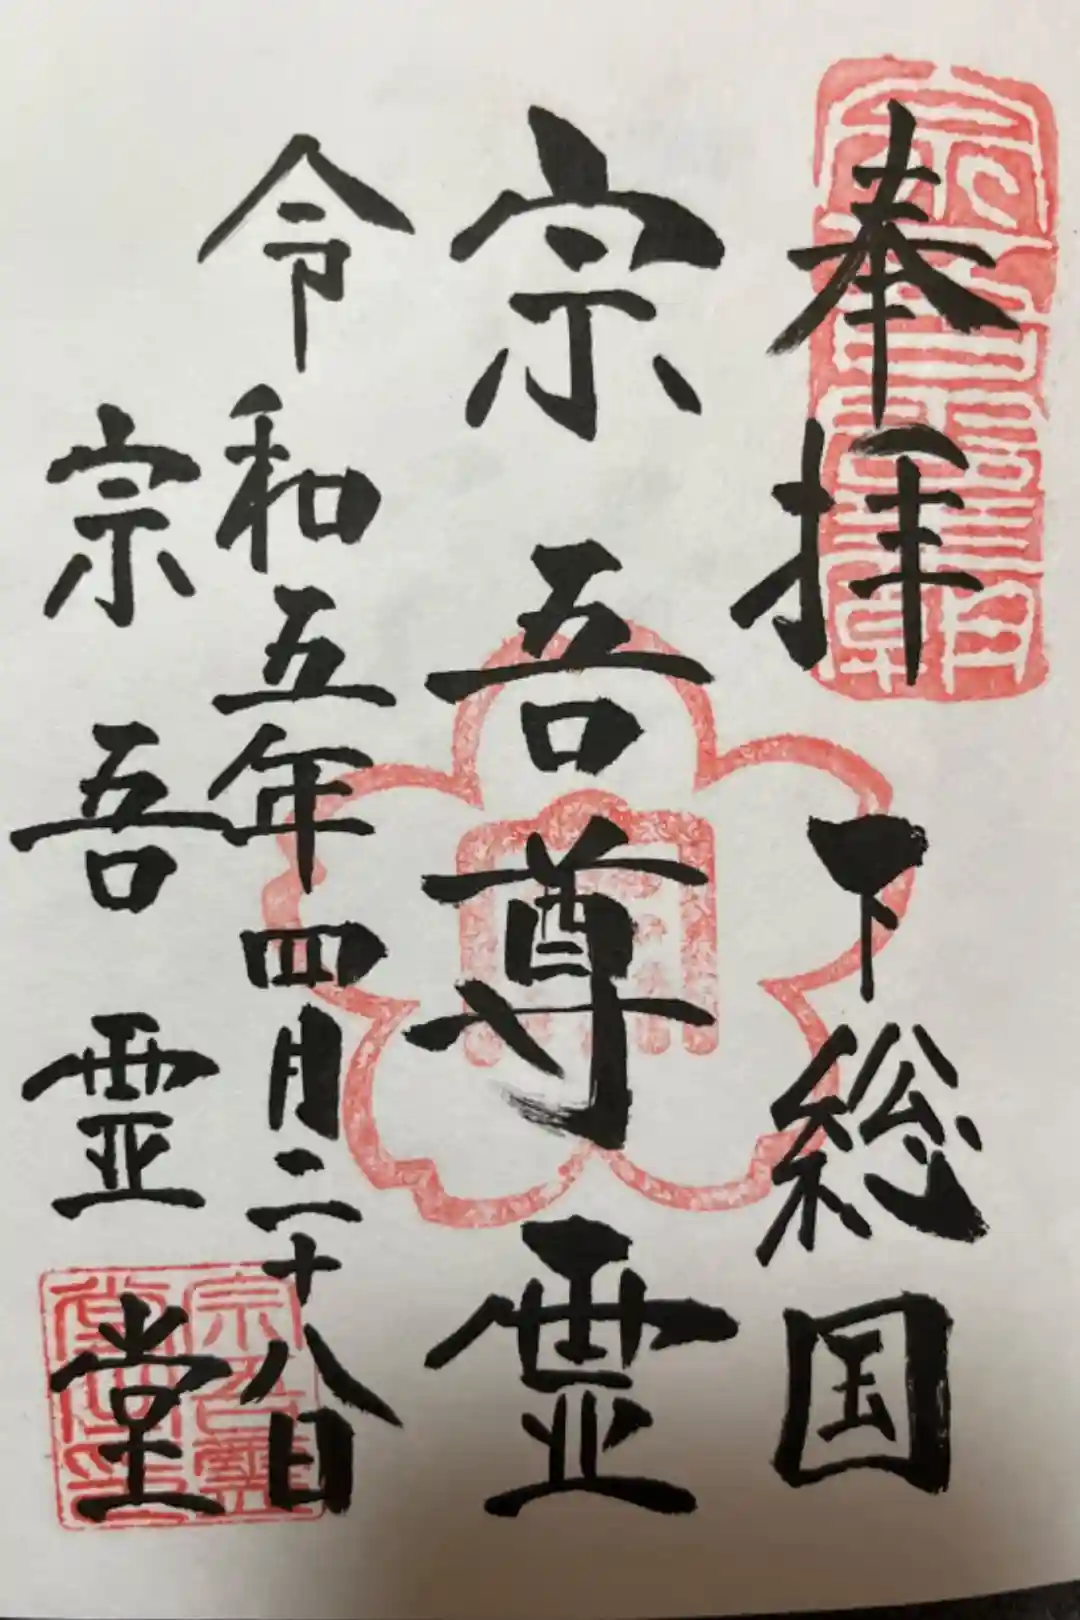 奉拝
下総国
宗吾尊霊
令和五年四月二十八日
宗吾霊堂